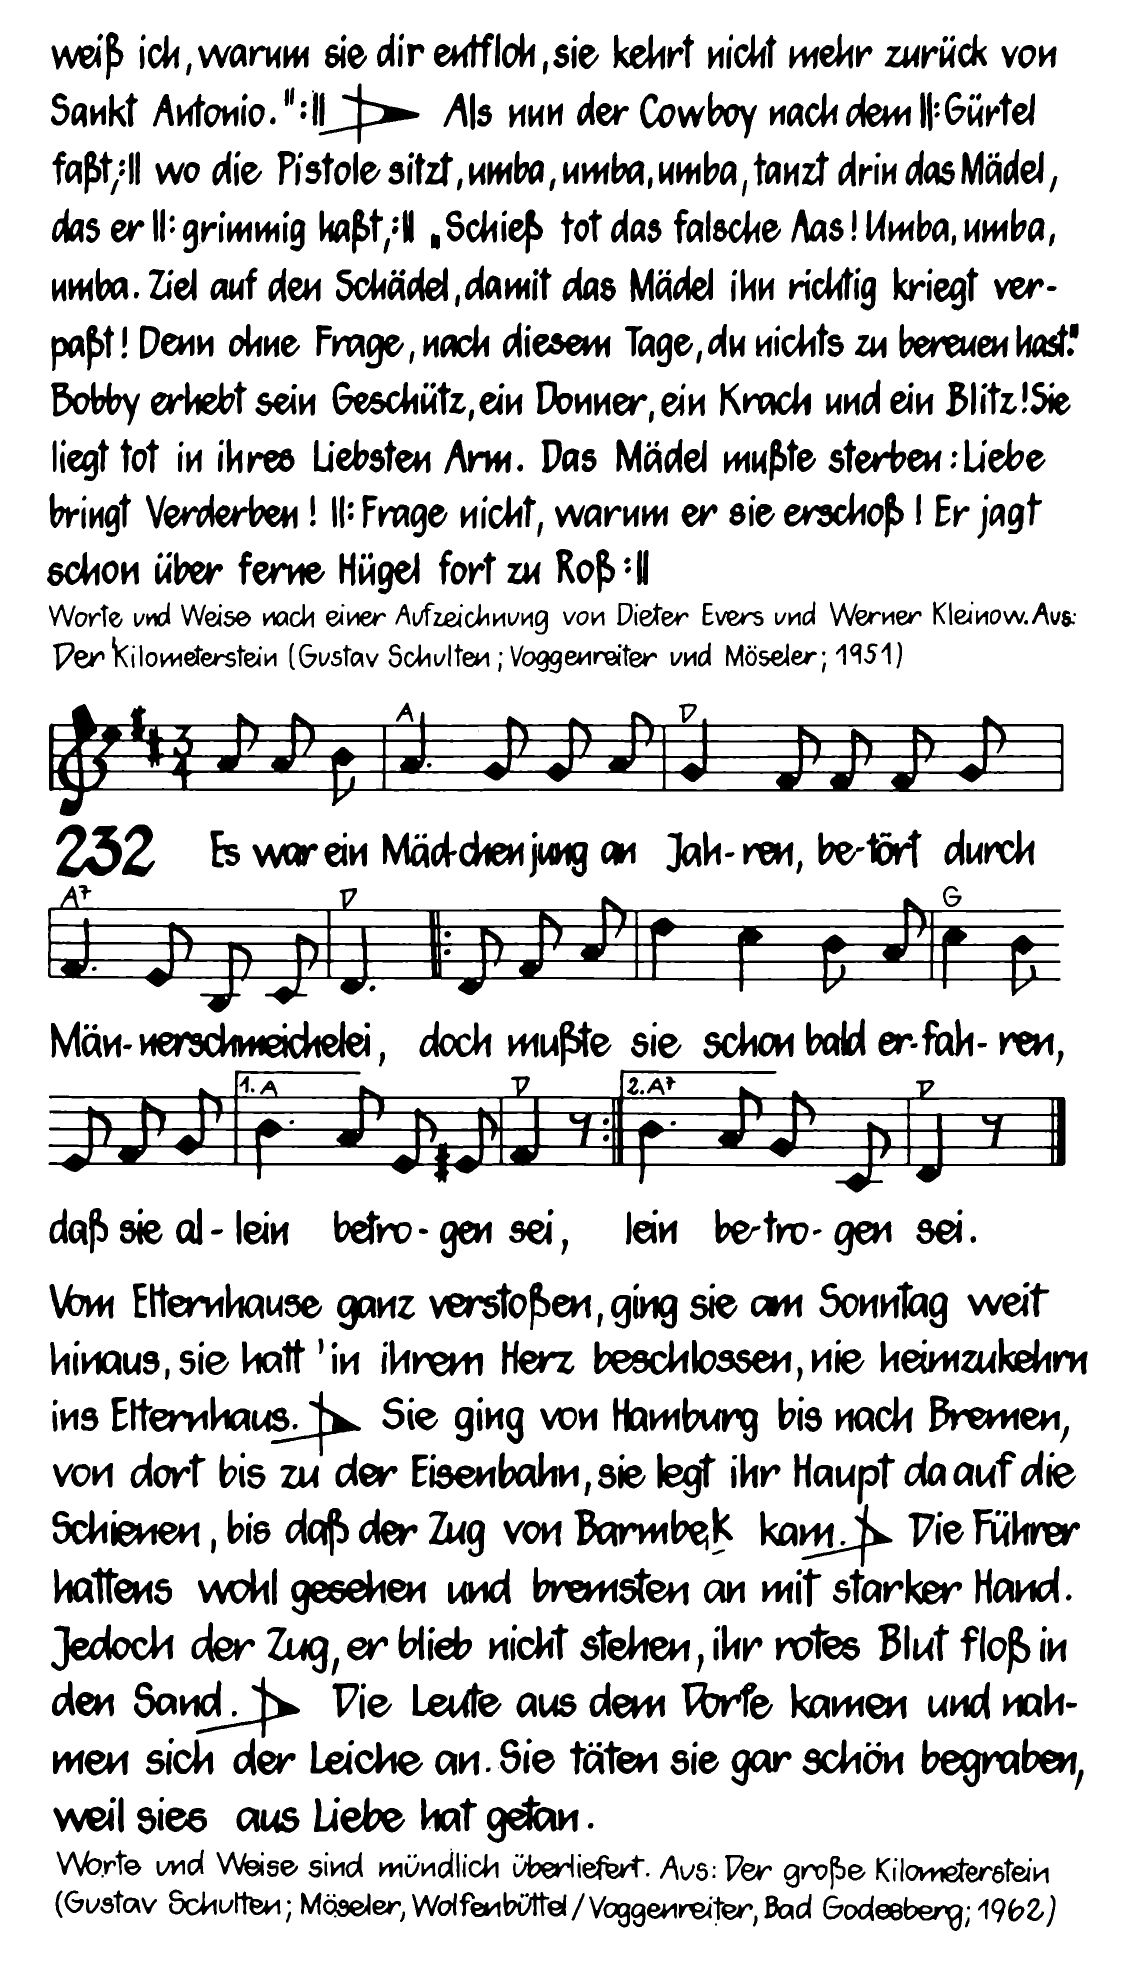 weiß ich, warum sie dir entfloh, sie kehrt nicht mehr zurück von
Sankt Antonio.":|| Als nun der Cowboy nach dem ||:Gürtel
faßt,:|| wo die Pistole sitzt, umba, umba, umba, tanzt drin das Mädel,
das er ||: grimmig haßt,:|| „Schieß tot das falsche Aas! Umba, umba,
umba. Ziel auf den Schädel, damit das Mädel ihn richtig kriegt ver-
paßt! Denn ohne Frage, nach diesem Tage, du nichts zu bereuen hast."
Bobby erhebt sein Geschütz, ein Donner, ein Krach und ein Blitz! Sie
liegt tot in ihres Liebsten Arm. Das Mädel mußte sterben: Liebe
bringt Verderben! ||: Frage nicht, warum er sie erschoß! Er jagt
schon über ferne Hügel fort zu Roß :||
Worte und Weise nach einer Aufzeichnung von Dieter Evers und Werner Kleinow. Aus:
Der Kilometerstein (Gustav Schulten; Voggenreiter und Möseler; 1951)
A D
3/4
232 Es war ein Mäd-chen jung an Jah-ren, be-tört durch
A7 D G
Män-nerschmeichelei, doch mußte sie schon bald er-fah-ren,
1. A D 2. A7 D
daß sie al-lein betro-gen sei, lein be-tro-gen sei.
Vom Elternhause ganz verstoßen, ging sie am Sonntag weit
hinaus, sie hatt 'in ihrem Herz beschlossen, nie heimzukehrn
ins Elternhaus. Sie ging von Hamburg bis nach Bremen,
von dort bis zu der Eisenbahn, sie legt ihr Haupt da auf die
Schienen, bis daß der Zug von Barmbek kam. Die Führer
hattens wohl gesehen und bremsten an mit starker Hand.
Jedoch der Zug, er blieb nicht stehen, ihr rotes Blut floß in
den Sand. Die Leute aus dem Dorfe kamen und nah-
men sich der Leiche an. Sie täten sie gar schön begraben,
weil sies aus Liebe hat getan.
Worte und Weise sind mündlich überliefert. Aus: Der große Kilometerstein
(Gustav Schulten; Möseler, Wolfenbüttel/Voggenreiter, Bad Godesberg; 1962)